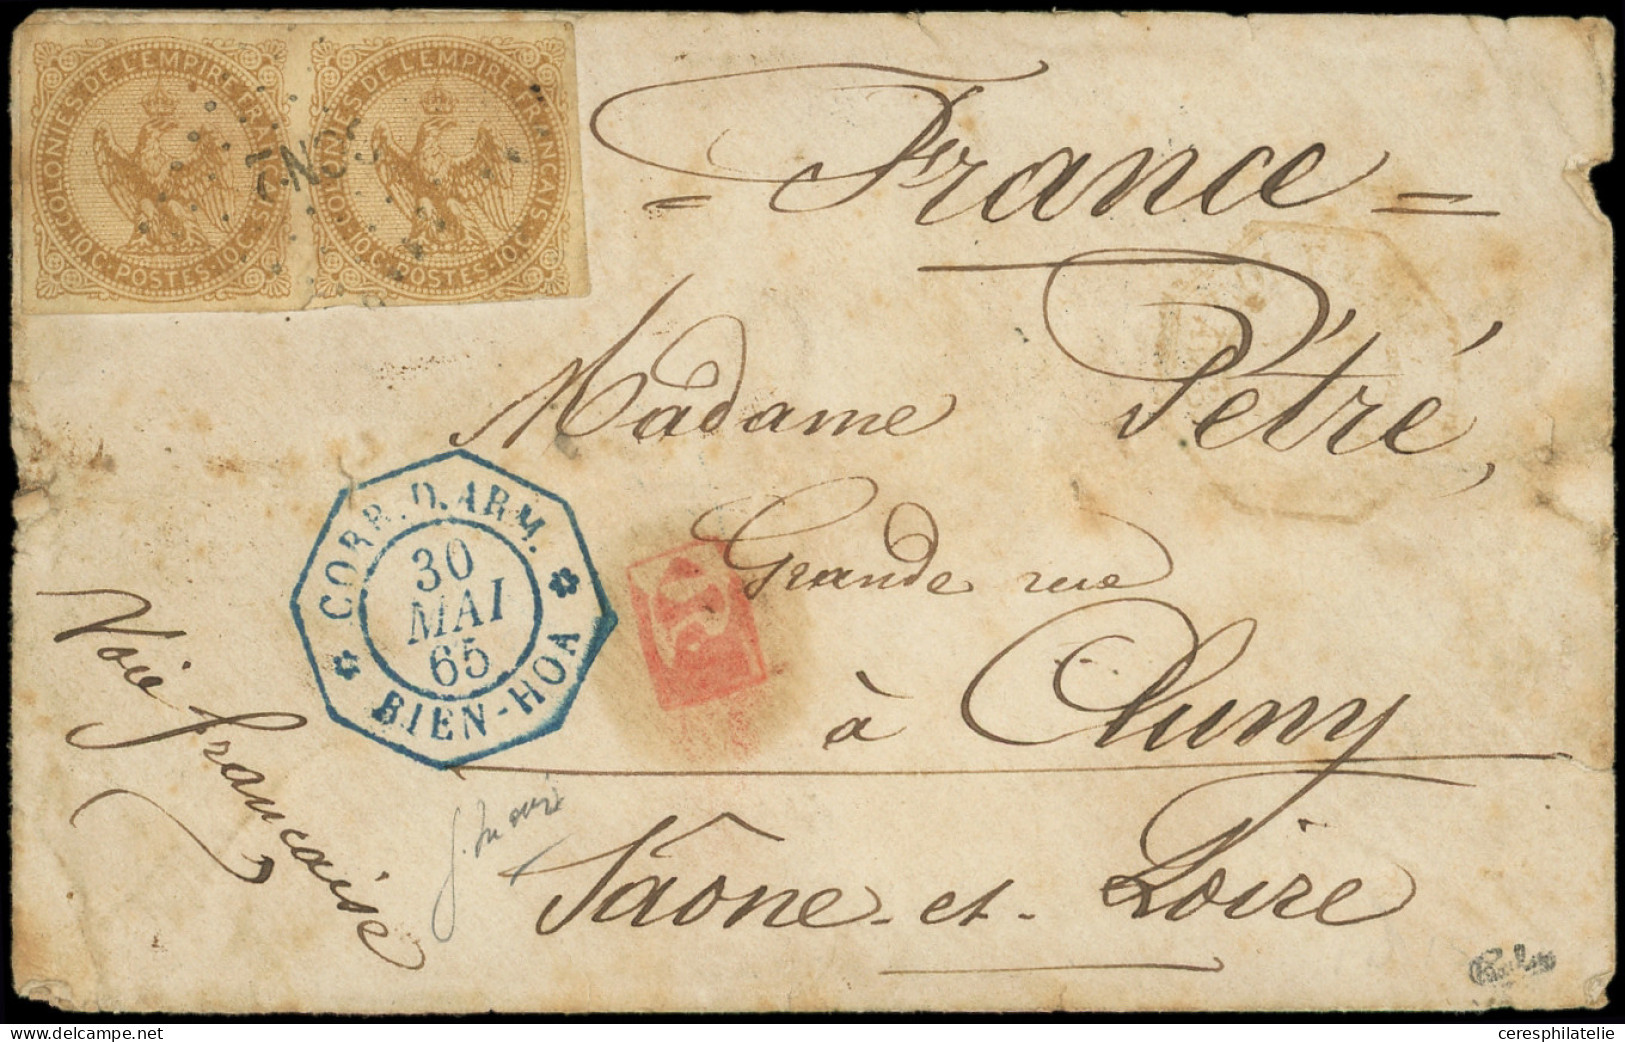 COLONIES DE L'EMPIRE FRANÇAIS
10C. POSTES. 10C.
COLONIES DE L'EMPIRE FRANÇAIS
10C. POSTES. 10C.
= France =
Madame Pétré,
Grande rue
à Cluny
Saône-et-Loire
Voie française
CORR. D. ARM.
30
MAI
65
BIEN-HOA
PD
www.delcampe.net
ceresphilatelie